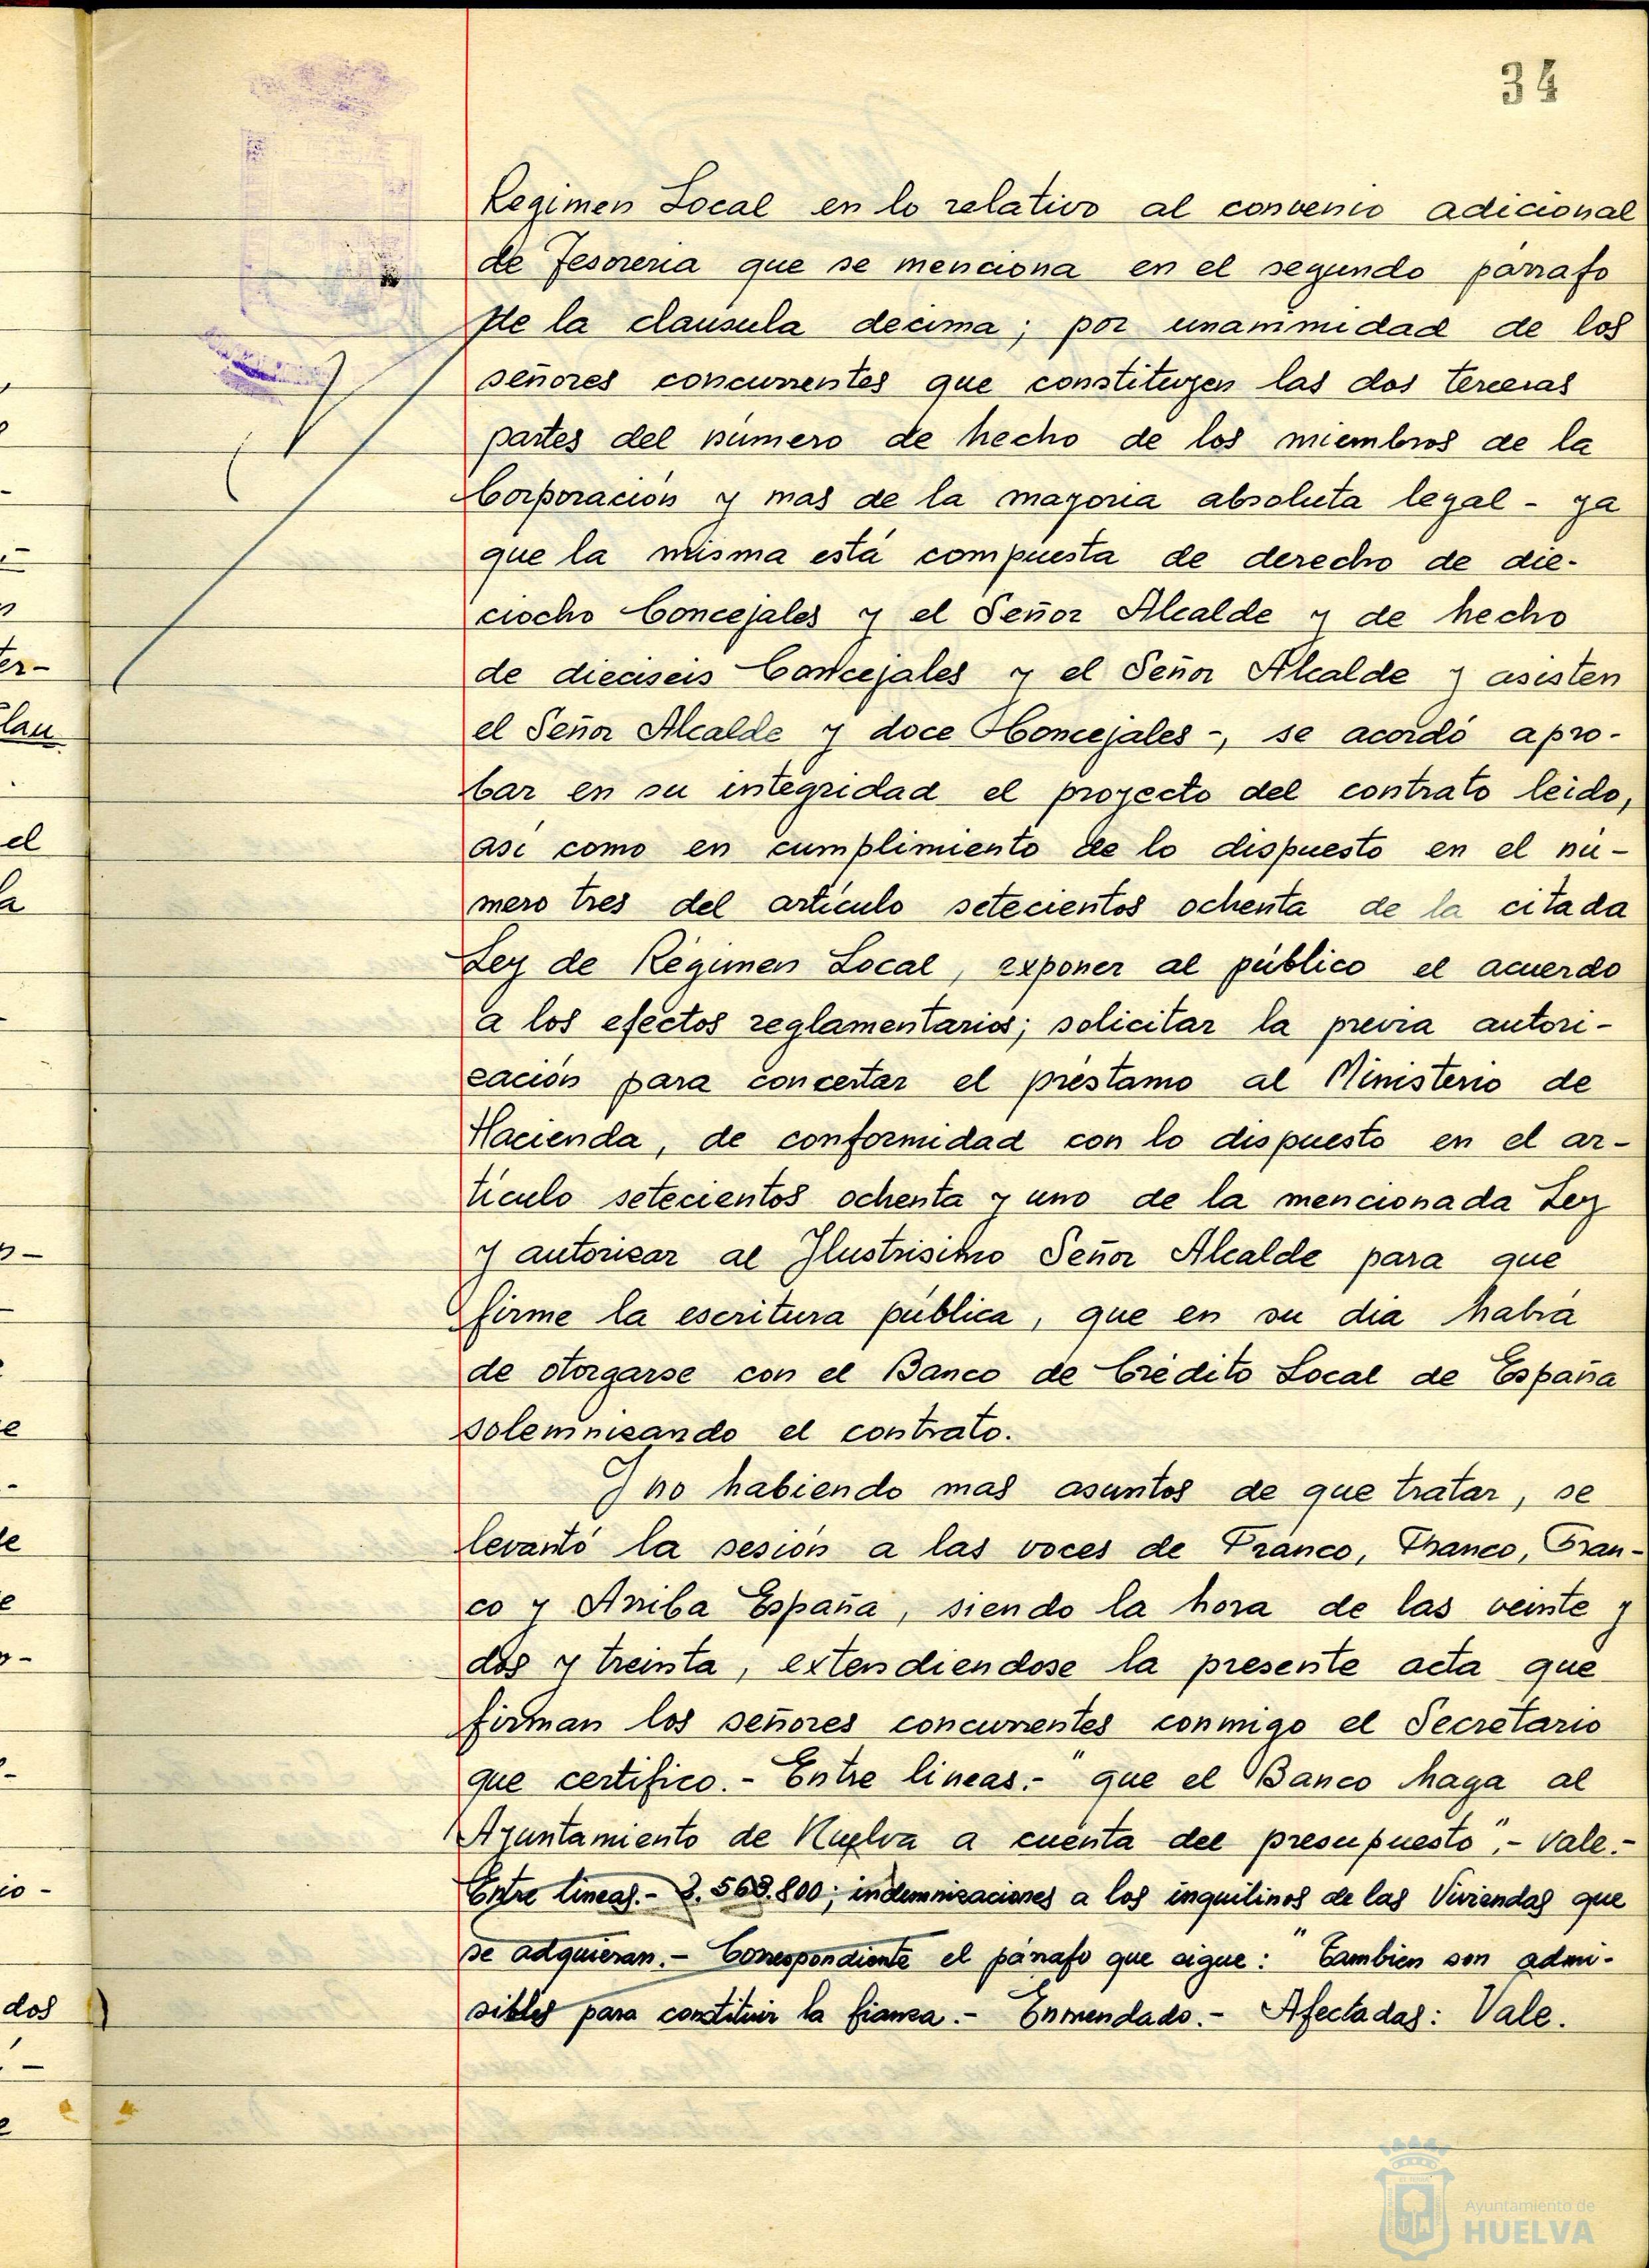 34
Regimen Local en lo relativo al convenio adicional
de Tesoreria que se menciona en el segundo párrafo
de la clausula decima; por unanimidad de los
señores concurrentes que constituyen las dos terceras
partes del número de hecho de los miembros de la
Corporación y mas de la mayoria absoluta legal - ya
que la misma está compuesta de derecho de die-
ciocho Concejales y el Señor Alcalde y de hecho
de dieciseis Concejales y el Señor Alcalde y asisten
el Señor Alcalde y doce Concejales -, se acordó apro-
bar en su integridad el proyecto del contrato leido,
asi como en cumplimiento de lo dispuesto en el nú-
mero tres del artículo setecientos ochenta de la citada
Ley de Régimen Local, exponer al público el acuerdo
a los efectos reglamentarios; solicitar la previa autori-
zación para concertar el préstamo al Ministerio de
Hacienda, de conformidad con lo dispuesto en el ar-
tículo setecientos ochenta y uno de la mencionada Ley
y autorizar al Ilustrisimo Señor Alcalde para que
firme la escritura pública, que en su dia habrá
de otorgarse con el Banco de Crédito Local de España
solemnizando el contrato.
Y no habiendo mas asuntos de que tratar, se
levantó la sesión a las voces de Franco, Franco, Fran-
co y Arriba España, siendo la hora de las veinte y
dos y treinta, extendiendose la presente acta que
firman los señores concurrentes conmigo el Secretario
que certifico.- Entre lineas.- "que el Banco haga al
Ayuntamiento de Huelva a cuenta del presupuesto".- Vale.-
Entre lineas.- 3.568.800; indemnizaciones a los inquilinos de las Viviendas que
se adquieran.- Correspondiente el párrafo que sigue: "Tambien son admi-
sibles para constituir la fianza.- Enmendado.- Afectadas: Vale.
er-
lau
el
la
e
dos
Ayuntamiento de
HUELVA